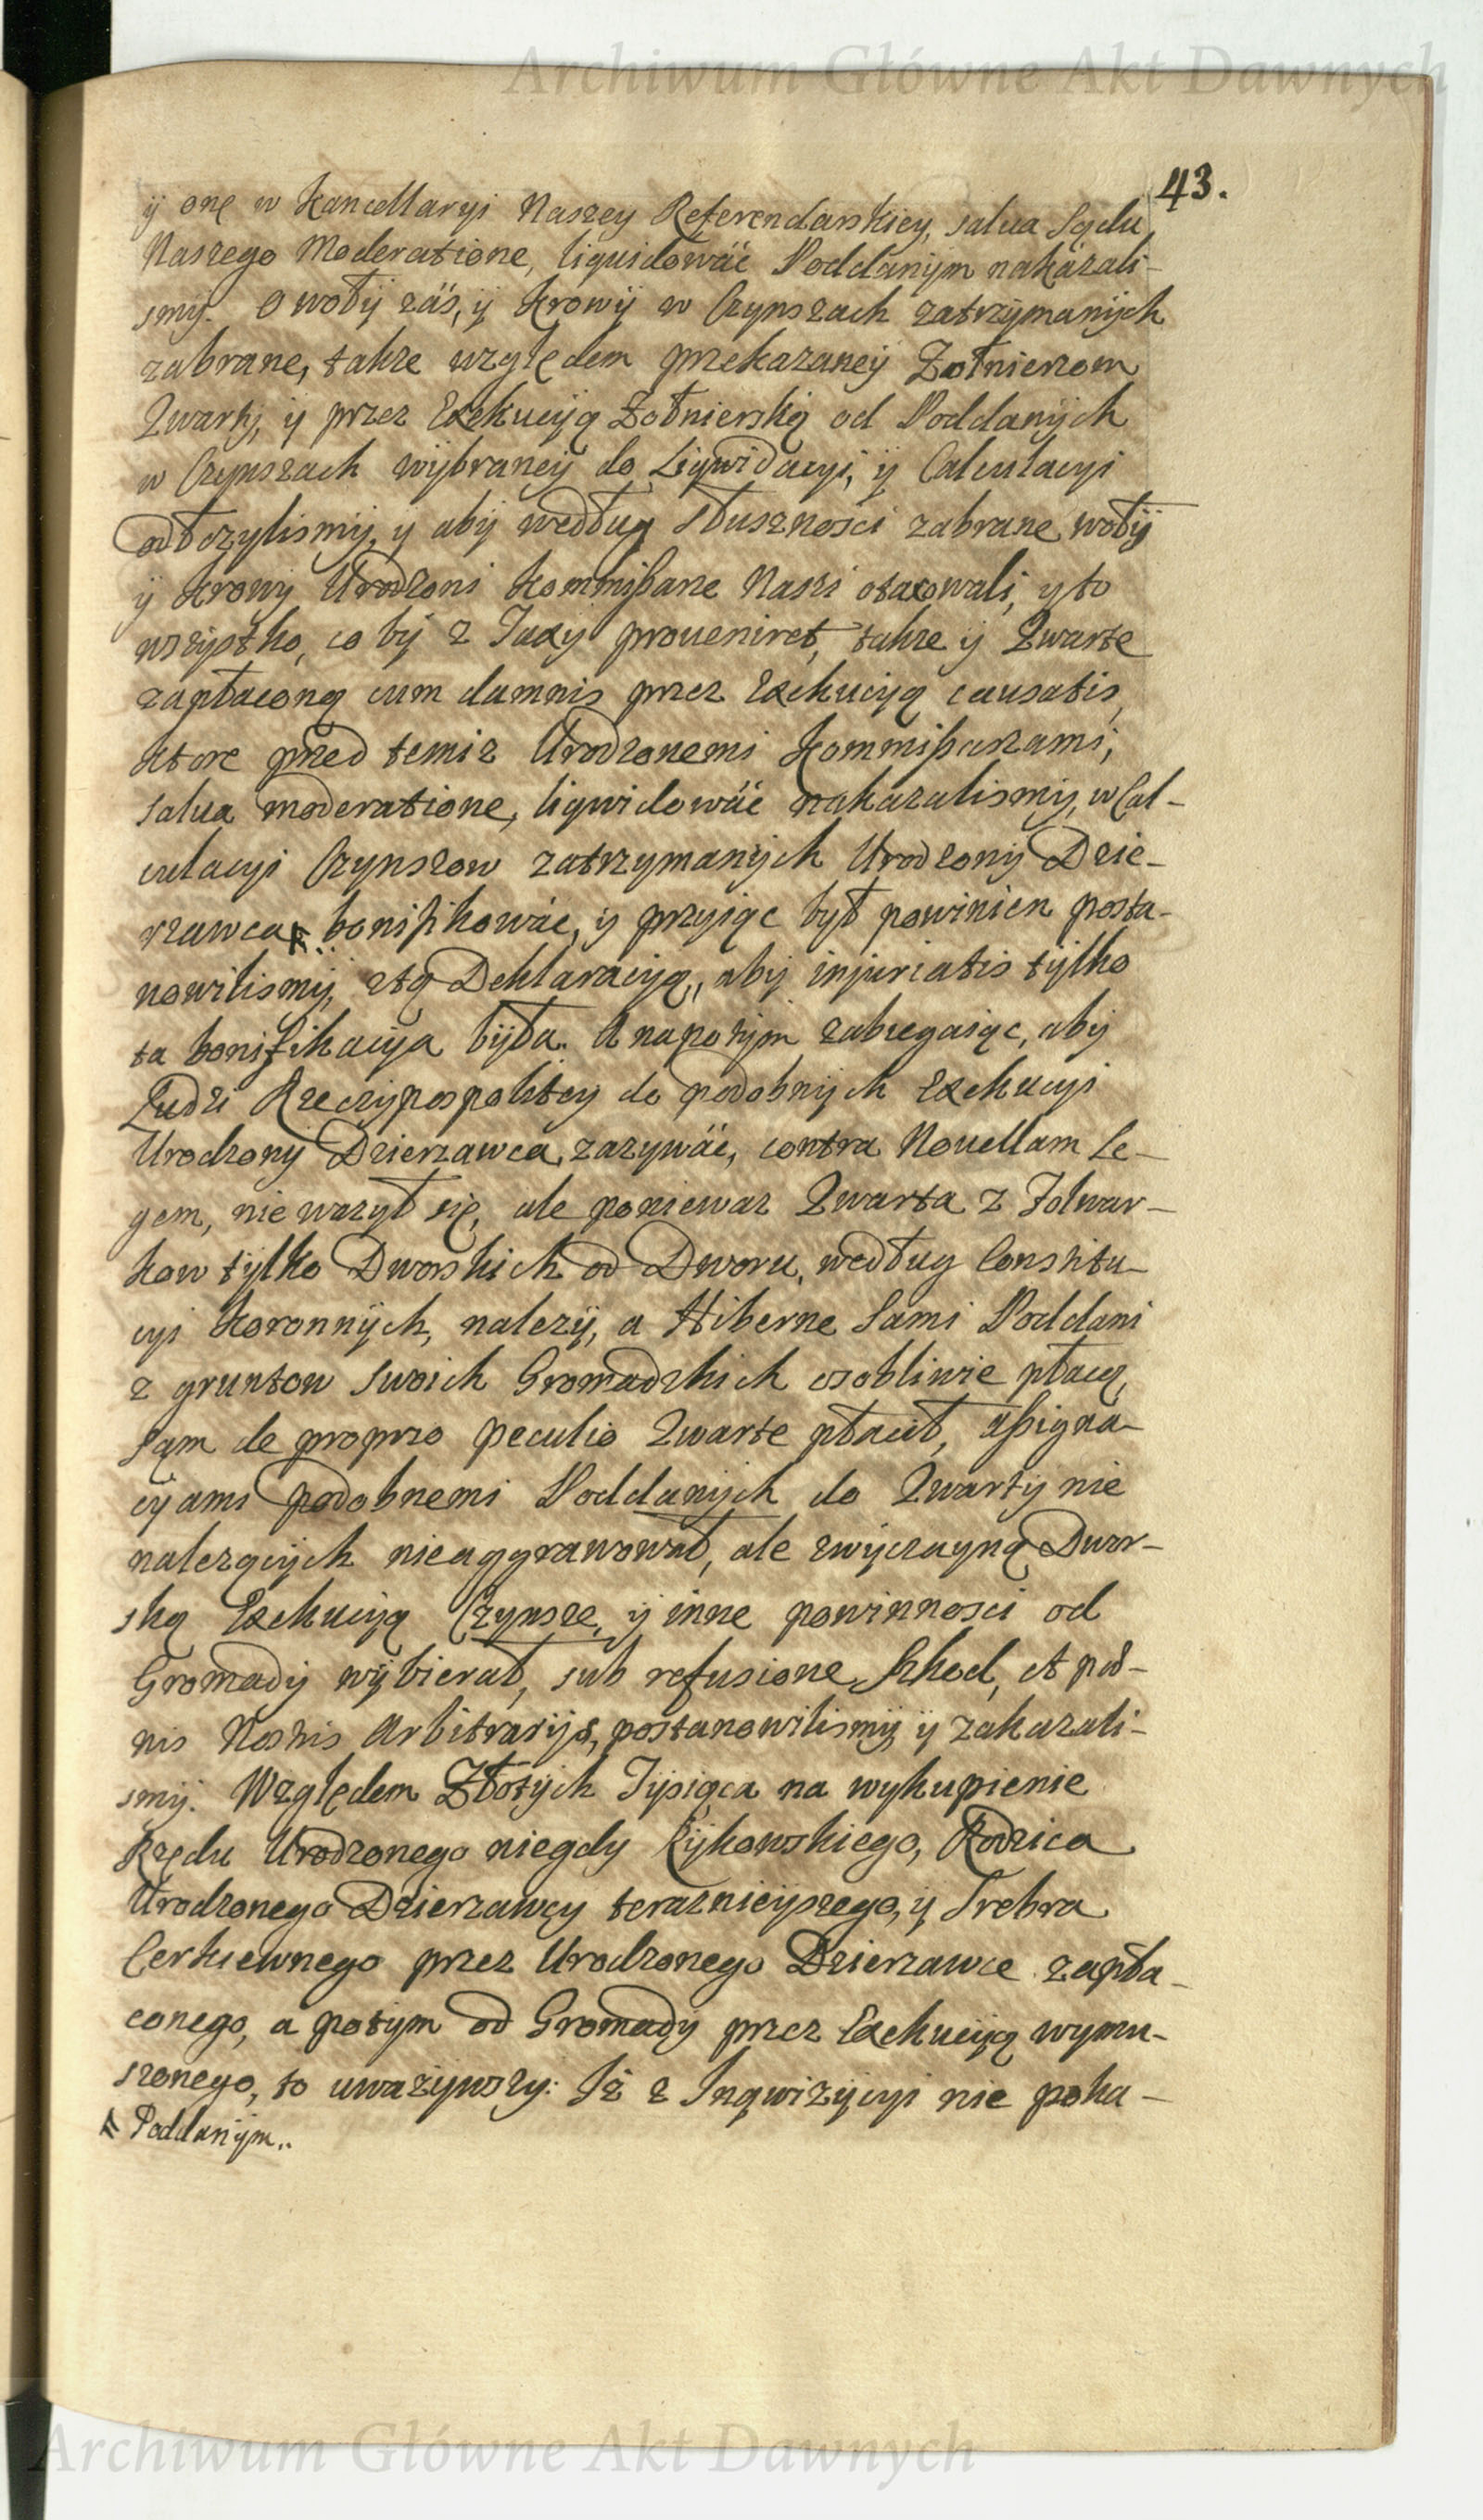 Archiwum Główne Akt Dawnych
43.
ÿ onę w Kancellaryi Naszey Referendarskiey, salua Sądu
Naszego Moderatione, liquidowáć Poddanÿm nakázali-
smÿ. O wołÿ záś, ÿ Krowÿ w Czynszach zatrzÿmanÿch
zabrane, także względem przekazaneÿ Zołnierzom
Kwartÿ, ÿ przez Exekucÿą Zołnierską od Poddanÿch
w Czynszach wÿbraneÿ do Liqwidacyi, ÿ Calculacyi
odłozylismÿ, y abÿ według słusznosci zabrane wołÿ
ÿ Krowÿ Urodzoni Kommissarze Nasi otaxowali, y to
wszÿstko, co bÿ z Taxy proueniret, także ÿ Kwarte
zapłaconą cum damnis przez Exekucÿą causatis,
ktore przed temiz Urodzonemi Kommissarzami,
salua moderatione, liqwidowáć nakazalismÿ, w Cal-
culacyi Czynszow zatrzymanÿch Urodzonÿ Dzie-
rzawca # bonifikowáć, ÿ przyiąc był powinien posta-
nowilismÿ, ztą Deklaracÿą, abÿ injuriatis tÿlko
ta bonifikacÿa bÿła. A napotÿm zabiegaiąc, abÿ
Ludzi Rzeczÿpospolitey do podobnÿch Exekucyi
Urodzony Dzierzawca, zazywáć, contra Nouellam Le-
gem, nie wazył się, ale poniewaz Kwarta z Folwar-
kow tÿlko Dworskich od Dworu, według Constitu-
cyi Koronnÿch, nalezÿ, a Hiberne Sami Poddani
z gruntow swoich Gromadzkich osobliwie płacą,
sąm de proprio peculio Kwarte płacił, assigna-
cÿami podobnemi Poddanÿch do Kwartÿ nie
nalezącÿch nieaggrawował, ale zwÿczayną Dwor-
ską Exekucÿą Czynsze, ÿ inne powinnosci od
Gromadÿ wÿbierał, sub refusione Szkod, et pœ-
nis Nostris Arbitrarÿs, postanowilismÿ, ÿ zakazali-
smÿ. Względem Złotÿch Tÿsiąca na wykupienie
Rzędu Urodzonego niegdy Rÿkowskiego, Rodzica
Urodzonego Dzierzawcy teraznieÿszego, ÿ Srebra
Cerkiewnego przez Urodzonego Dzierzawce zapła-
conego, a potym od Gromadÿ przez Exekucÿą wymu-
szonego, to uwazÿwszy: Iż z Inqwizÿcyi nie poka-
# Poddanÿm..
Archiwum Główne Akt Dawnych